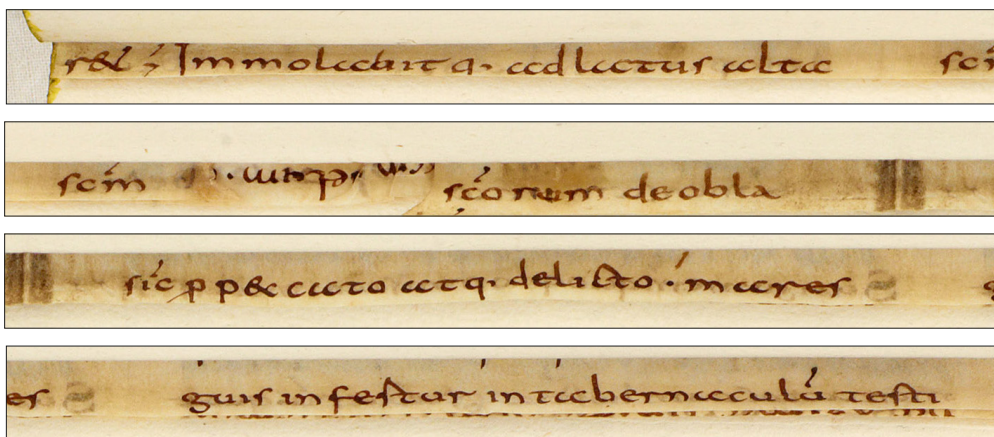 r& ÷ Immolabitq· ad latus alta sc̄m
sc̄m sc̄orum de obla
sic ꝓ peccato atq· delicto · mares
es guis infertur in tabernaculū testi